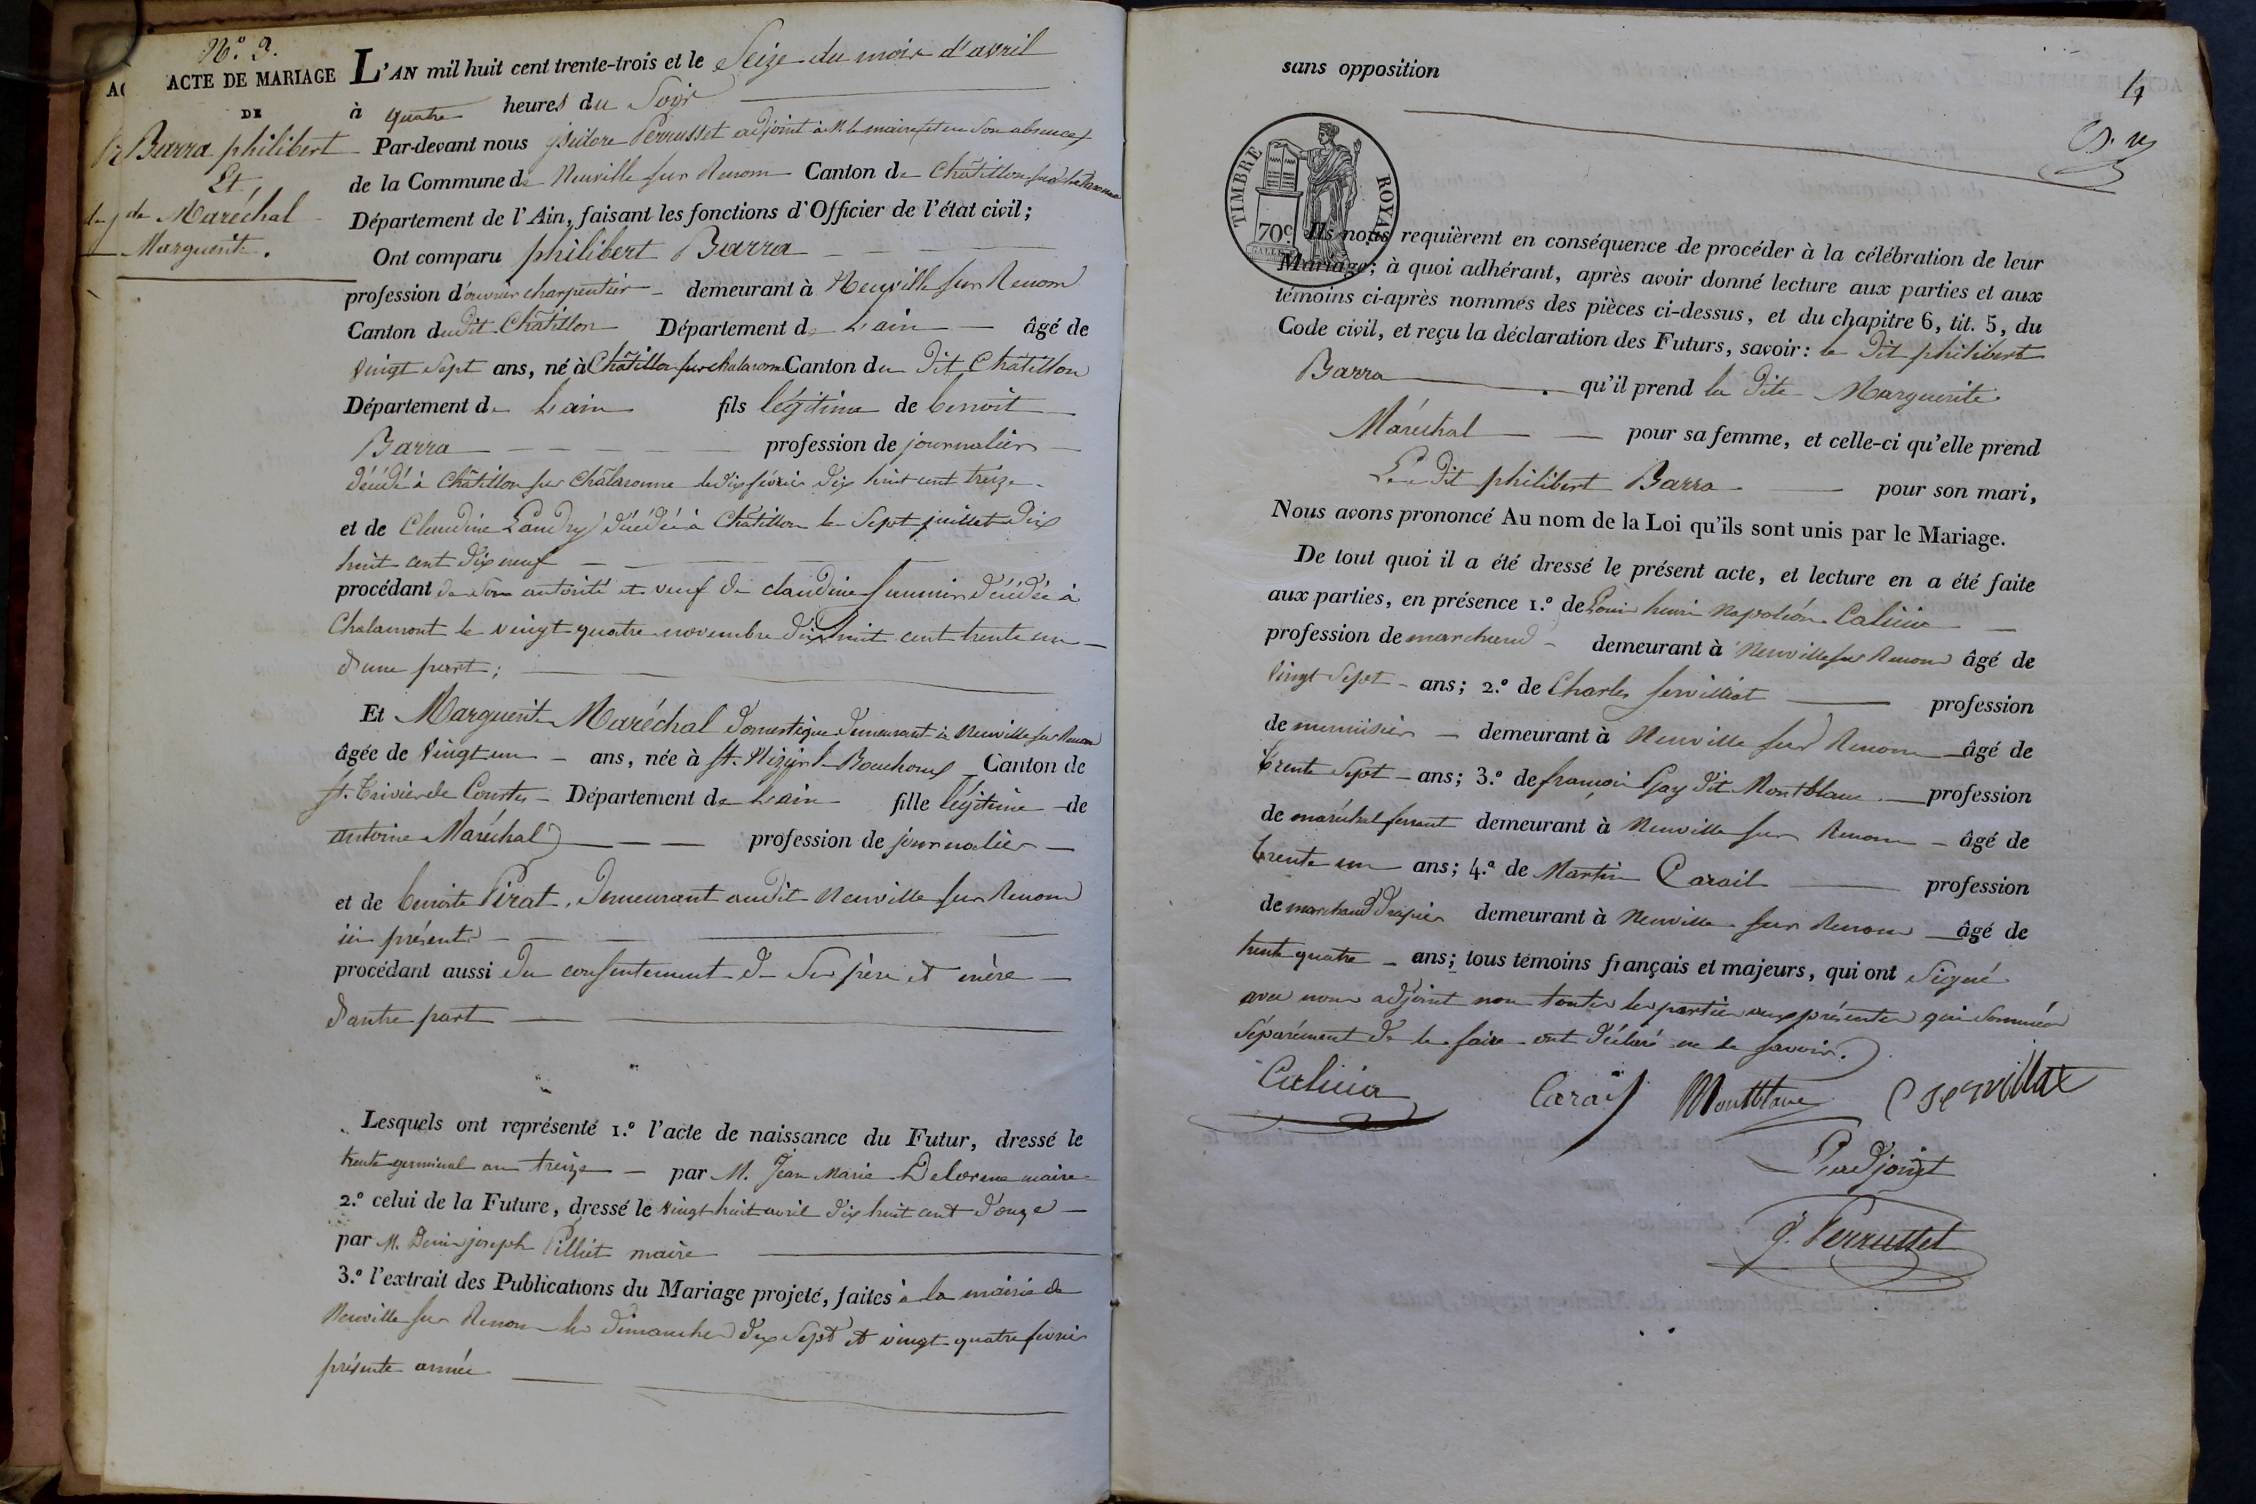 N.o 9.
ACTE DE MARIAGE
DE
Barra philibert
Et
de Maréchal
Marguerite.
L'AN mil huit cent trente-trois et le Seize du mois d'avril
à quatre heures du Soir
Par-devant nous isidore Perrusset adjoint à M. le maire et en son absence
de la Commune de Neuville sur Renom Canton de Châtillon sur Chalaronne
Département de l'Ain, faisant les fonctions d'Officier de l'état civil;
Ont comparu philibert Barra
profession d'ouvrier charpentier demeurant à Neuville sur Renom
Canton dudit Châtillon Département de L'ain âgé de
vingt sept ans, né à Châtillon sur chalaronne Canton du Dit Châtillon
Département de L'ain fils légitime de benoit
Barra profession de journalier
décédé à Châtillon sur Châlaronne le dix février dix huit cent treize
et de Claudine Landry décédée à Châtillon le Sept juillet dix
huit cent dix neuf
procédant de son autorité et veuf de claudine décédée à
Chalamont le vingt quatre novembre dix huit cent trente un
d'une part;
Et Marguerite Maréchal domestique demeurant à Neuville sur Renom
âgée de vingt un ans, née à St. Nizier le Bouchoux Canton de
St. Trivier de Courtes Département de L'ain fille légitime de
antoine Maréchal profession de journalier
et de benoite Pirat, demeurant audit Neuville sur Renom
ici présents
procédant aussi du consentement de Ses père et mère
d'autre part
Lesquels ont représenté 1.o l'acte de naissance du Futur, dressé le
trente germinal an treize par M. Jean Marie Delorme maire
2.o celui de la Future, dressé le vingt huit avril dix huit cent d'onze
par M. Denis joseph Pilliet maire
3.o l'extrait des Publications du Mariage projeté, faites à la mairie de
Neuville sur Renom les dimanches dix sept et vingt quatre fevrier
présente année
4
sans opposition
TIMBRE ROYAL
70c
Ils nous requièrent en conséquence de procéder à la célébration de leur
Mariage; à quoi adhérant, après avoir donné lecture aux parties et aux
témoins ci-après nommés des pièces ci-dessus, et du chapitre 6, tit. 5, du
Code civil, et reçu la déclaration des Futurs, savoir: le Dit philibert
Barra qu'il prend la dite Marguerite
Maréchal pour sa femme, et celle-ci qu'elle prend
Le Dit philibert Barra pour son mari,
Nous avons prononcé Au nom de la Loi qu'ils sont unis par le Mariage.
De tout quoi il a été dressé le présent acte, et lecture en a été faite
aux parties, en présence 1.o de Louis henri Napoléon Calicia
profession de marchand demeurant à Neuville sur Renom âgé de
vingt Sept ans; 2.o de Charles servillat profession
de menuisier demeurant à Neuville sur Renom âgé de
trente Sept ans; 3.o de françois Gay dit Montblanc profession
de maréchal ferrant demeurant à Neuville sur Renom âgé de
trente un ans; 4.o de Martin Carail profession
de marchand drapier demeurant à Neuville sur Renom âgé de
trente quatre ans; tous témoins français et majeurs, qui ont Signé
avec nous adjoint non toutes les parties présentes qui Sommées
Séparément de le faire ont déclaré ne le savoir.
Calicia Carail Montblanc C servillat
L'adjoint
j. Perrusset